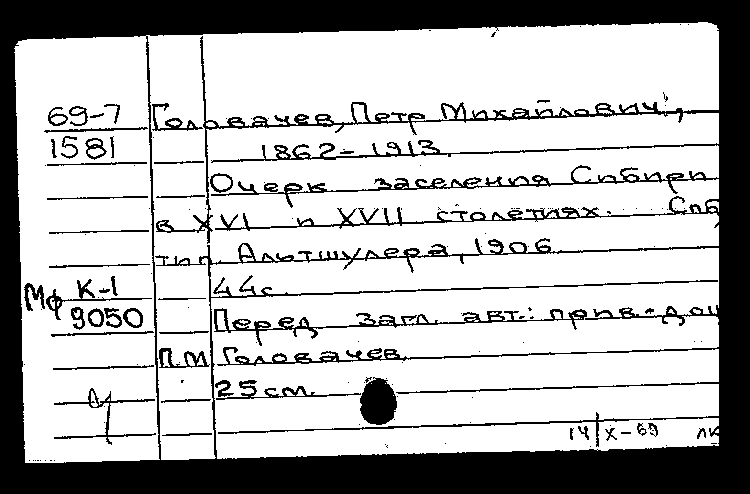 69-7 Головачев, Петр Михайлович,
1581 1862-1913.
Очерк заселения Сибири
в XVI и XVII столетиях. Спб,
тип. Альтшулера, 1906.
Мф К-1 44с.
9050 Перед загл. авт.: прив.-доц
П.М. Головачев.
25см.
14/X-69 лк